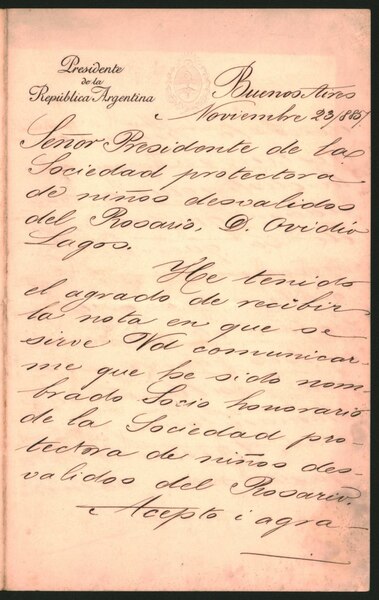 Presidente
de la
República Argentina
Buenos Aires
Noviembre 23/885
Señor Presidente de la
Sociedad protectora
de niños desvalidos
del Rosario, D. Ovidio
Lagos.
He tenido
el agrado de recibir
la nota en que se
sirve Vd comunicar-
me que he sido nom-
brado Socio honorario
de la Sociedad pro-
tectora de niños des-
validos del Rosario.
Acepto i agra-